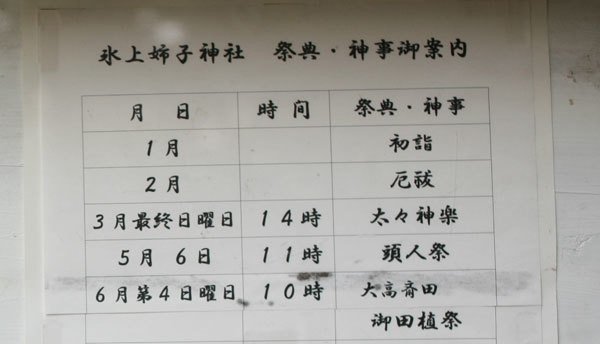 氷上姉子神社　祭典・神事御案内
月　日　時　間　祭典・神事
1月　初詣
2月　厄祓
3月最終日曜日　14時　太々神楽
5月　6日　11時　頭人祭
6月第4日曜日　10時　大高斉田
御田植祭